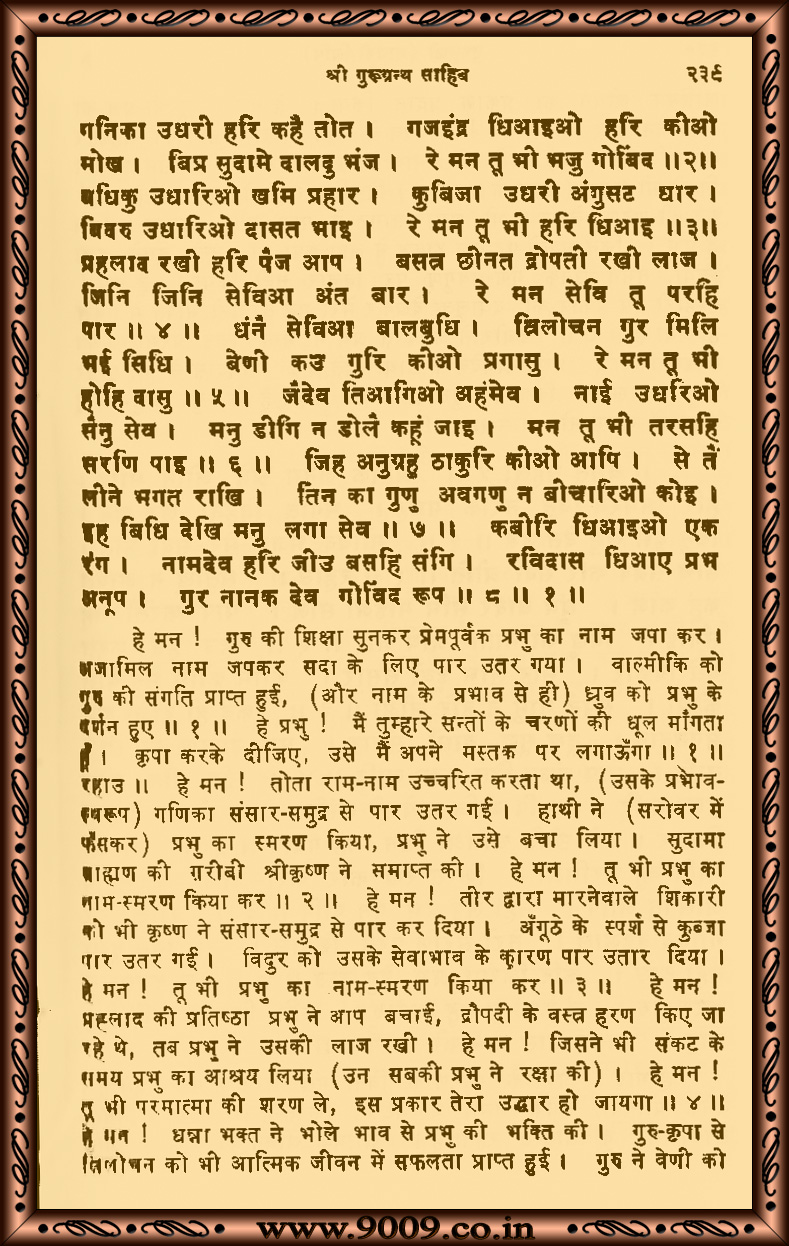 श्री गुरूग्रन्थ साहिब २३९
गनिका उधरी हरि कहै तोत । गजइंद्र धिआइओ हरि कीओ
मोख । बिप्र सुदामे दालदु भंज । रे मन तू भी भजु गोबिंद ॥२॥
बधिकु उधारिओ खमि प्रहार । कुबिजा उधरी अंगुसट धार ।
बिदरु उधारिओ दासत भाइ । रे मन तू भी हरि धिआइ ॥३॥
प्रहलाद रखी हरि पैज आप । बसत्र छीनत द्रोपती रखी लाज ।
जिनि जिनि सेविआ अंत बार । रे मन सेवि तू परहि
पार ॥ ४ ॥ धंनै सेविआ बालबुधि । त्रिलोचन गुर मिलि
भई सिधि । बेणी कउ गुरि कीओ प्रगासु । रे मन तू भी
होहि दासु ॥ ५ ॥ जैदेव तिआगिओ अहंमेव । नाई उधरिओ
सैनु सेव । मनु डीगि न डोलै कहूं जाइ । मन तू भी तरसहि
सरणि पाइ ॥ ६ ॥ जिह अनुग्रहु ठाकुरि कीओ आपि । से तैं
लीने भगत राखि । तिन का गुणु अवगणु न बीचारिओ कोइ ।
इह बिधि देखि मनु लगा सेव ॥ ७ ॥ कबीरि धिआइओ एक
रंग । नामदेव हरि जीउ बसहि संगि । रविदास धिआए प्रभ
अनूप । गुर नानक देव गोविंद रूप ॥ ८ ॥ १ ॥
हे मन ! गुरु की शिक्षा सुनकर प्रेमपूर्वक प्रभु का नाम जपा कर ।
अजामिल नाम जपकर सदा के लिए पार उतर गया । वाल्मीकि को
गुरु की संगति प्राप्त हुई, (और नाम के प्रभाव से ही) ध्रुव को प्रभु के
दर्शन हुए ॥ १ ॥ हे प्रभु ! मैं तुम्हारे सन्तों के चरणों की धूल माँगता
हूँ । कृपा करके दीजिए, उसे मैं अपने मस्तक पर लगाऊँगा ॥ १ ॥
रहाउ ॥ हे मन ! तोता राम-नाम उच्चरित करता था, (उसके प्रभाव-
स्वरूप) गणिका संसार-समुद्र से पार उतर गई । हाथी ने (सरोवर में
फँसकर) प्रभु का स्मरण किया, प्रभु ने उसे बचा लिया । सुदामा
ब्राह्मण की ग़रीबी श्रीकृष्ण ने समाप्त की । हे मन ! तू भी प्रभु का
नाम-स्मरण किया कर ॥ २ ॥ हे मन ! तीर द्वारा मारनेवाले शिकारी
को भी कृष्ण ने संसार-समुद्र से पार कर दिया । अँगूठे के स्पर्श से कुब्जा
पार उतर गई । विदुर को उसके सेवाभाव के कारण पार उतार दिया ।
हे मन ! तू भी प्रभु का नाम-स्मरण किया कर ॥ ३ ॥ हे मन !
प्रहलाद की प्रतिष्ठा प्रभु ने आप बचाई, द्रौपदी के वस्त्र हरण किए जा
रहे थे, तब प्रभु ने उसकी लाज रखी । हे मन ! जिसने भी संकट के
समय प्रभु का आश्रय लिया (उन सबकी प्रभु ने रक्षा की) । हे मन !
तू भी परमात्मा की शरण ले, इस प्रकार तेरा उद्धार हो जायगा ॥ ४ ॥
हे मन ! धन्ना भक्त ने भोले भाव से प्रभु की भक्ति की । गुरु-कृपा से
त्रिलोचन को भी आत्मिक जीवन में सफलता प्राप्त हुई । गुरु ने वेणी को
www.9009.co.in